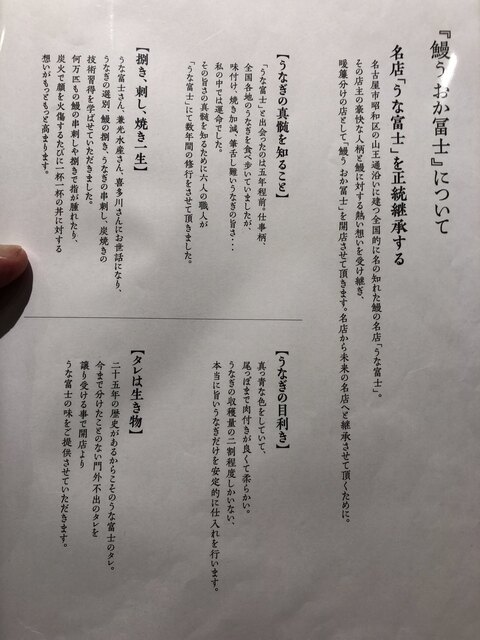 『鰻 うおか冨士』について
名店「うな富士」を正統継承する
名古屋市昭和区の山王通沿いに建つ全国的に名の知れた鰻の名店「うな富士」。
その店主の豪快な人柄と鰻に対する熱い想いを受け継ぎ、
暖簾分けの店として「鰻 うおか富士」を開店させて頂きます。名店から未来の名店へと継承させて頂くために。
【うなぎの真髄を知ること】
「うな富士」と出会ったのは五年程前。仕事柄、
全国各地のうなぎを食べ歩いていましたが、
味付け、焼き加減、筆舌し難いうなぎの旨さ・・・
私の中では運命でした。
その旨さの真髄を知るために六人の職人が
「うな富士」にて数年間の修行をさせて頂きました。
【捌き、刺し、焼き一生】
うな富士さん、兼光水産さん、喜多川さんにお世話になり、
うなぎの選別、鰻の捌き、うなぎの串刺し、炭焼きの
技術習得を学ばせていただきました。
何万匹もの鰻の串刺しや捌きで指が腫れたり、
炭火で顔を火傷するたびに一杯一杯の丼に対する
想いがもっともっと高まります。
【うなぎの目利き】
真っ青な色をしていて、
尾っぽまで肉付きが良くて柔らかい。
うなぎの収穫量の二割程度しかいない、
本当に旨いうなぎだけを安定的に仕入れを行います。
【タレは生き物】
二十五年の歴史があるからこそのうな富士のタレ。
今まで分けたことのない門外不出のタレを
譲り受ける事で開店より
うな富士の味をご提供させていただきます。